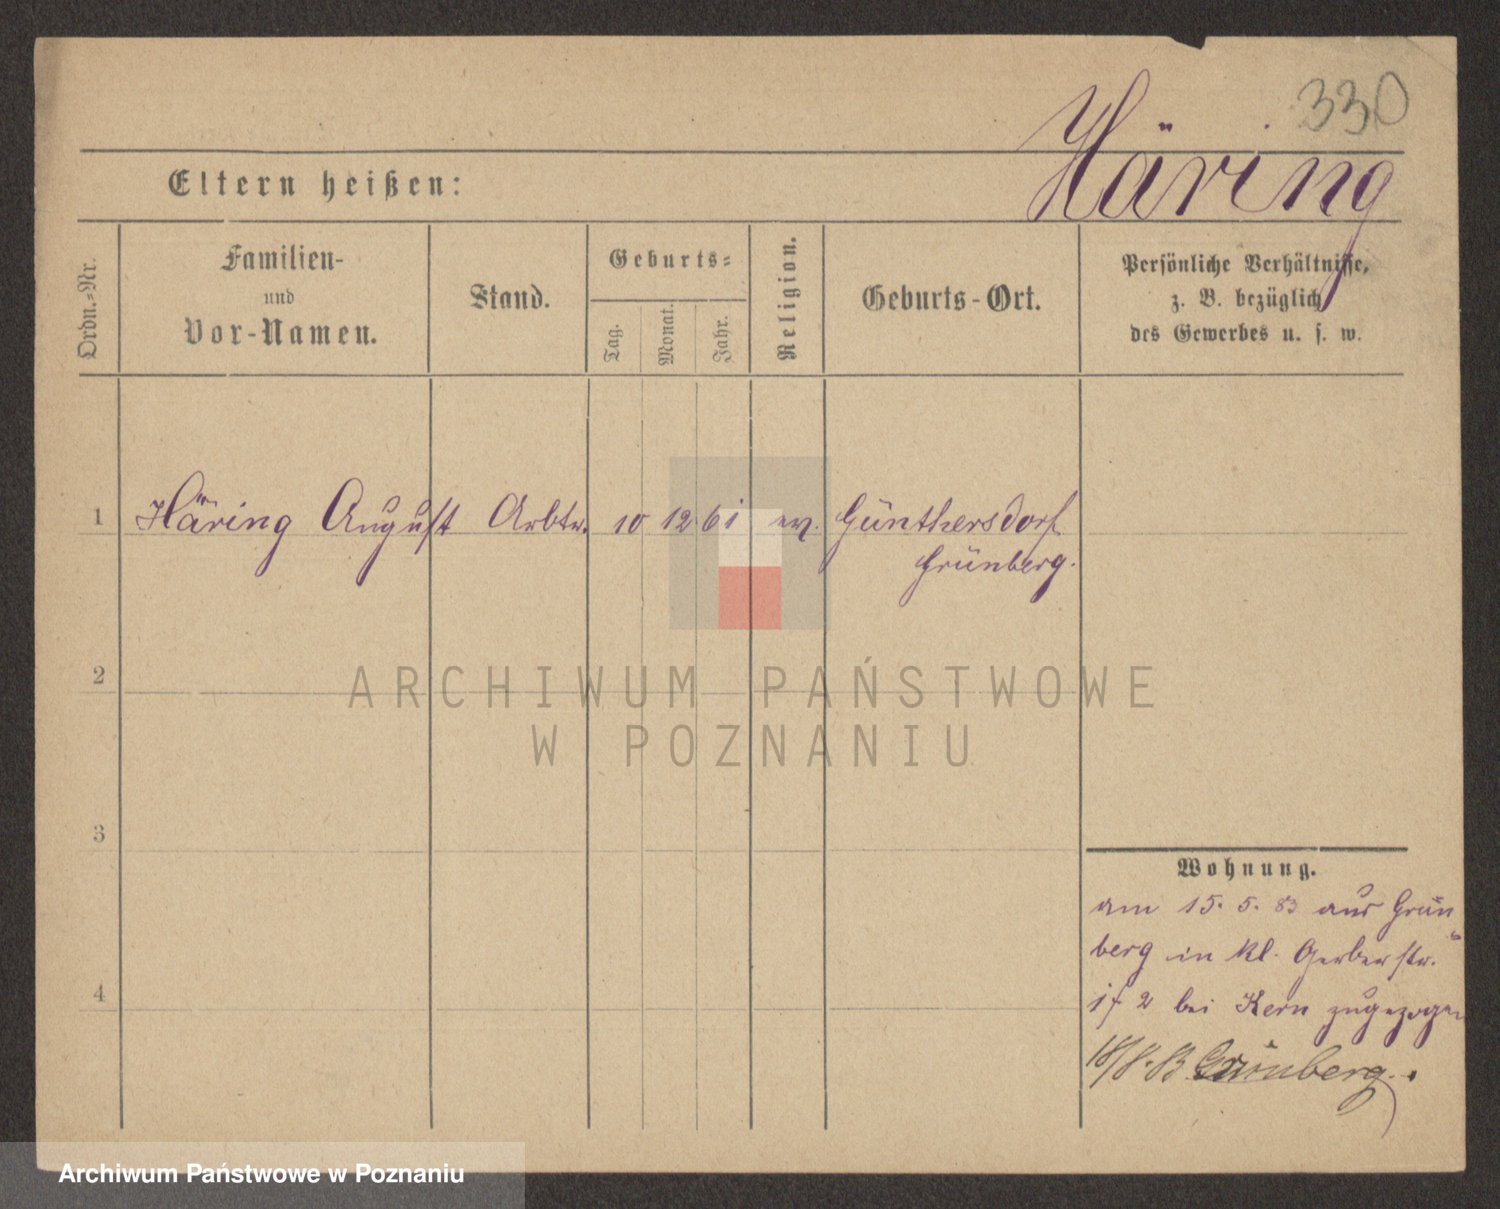 330
Häring
Eltern heißen:
Ordn.=Nr.
Familien-
und
Vor-Namen.
Stand.
Geburts=
Tag.
Monat.
Jahr.
Religion.
Geburts-Ort.
Persönliche Verhältnisse,
z. B. bezüglich
des Gewerbes u. s. w.
1 Häring August Arbtr. 10 12 61 ev. Günthersdorf
Grünberg.
2
3
4
ARCHIWUM PAŃSTWOWE
W POZNANIU
Wohnung.
am 15. 5. 83 aus Grün
berg in kl. Gerberstr.
2 bei Kern zugezogen
18/8. 83 Grünberg.
Archiwum Państwowe w Poznaniu